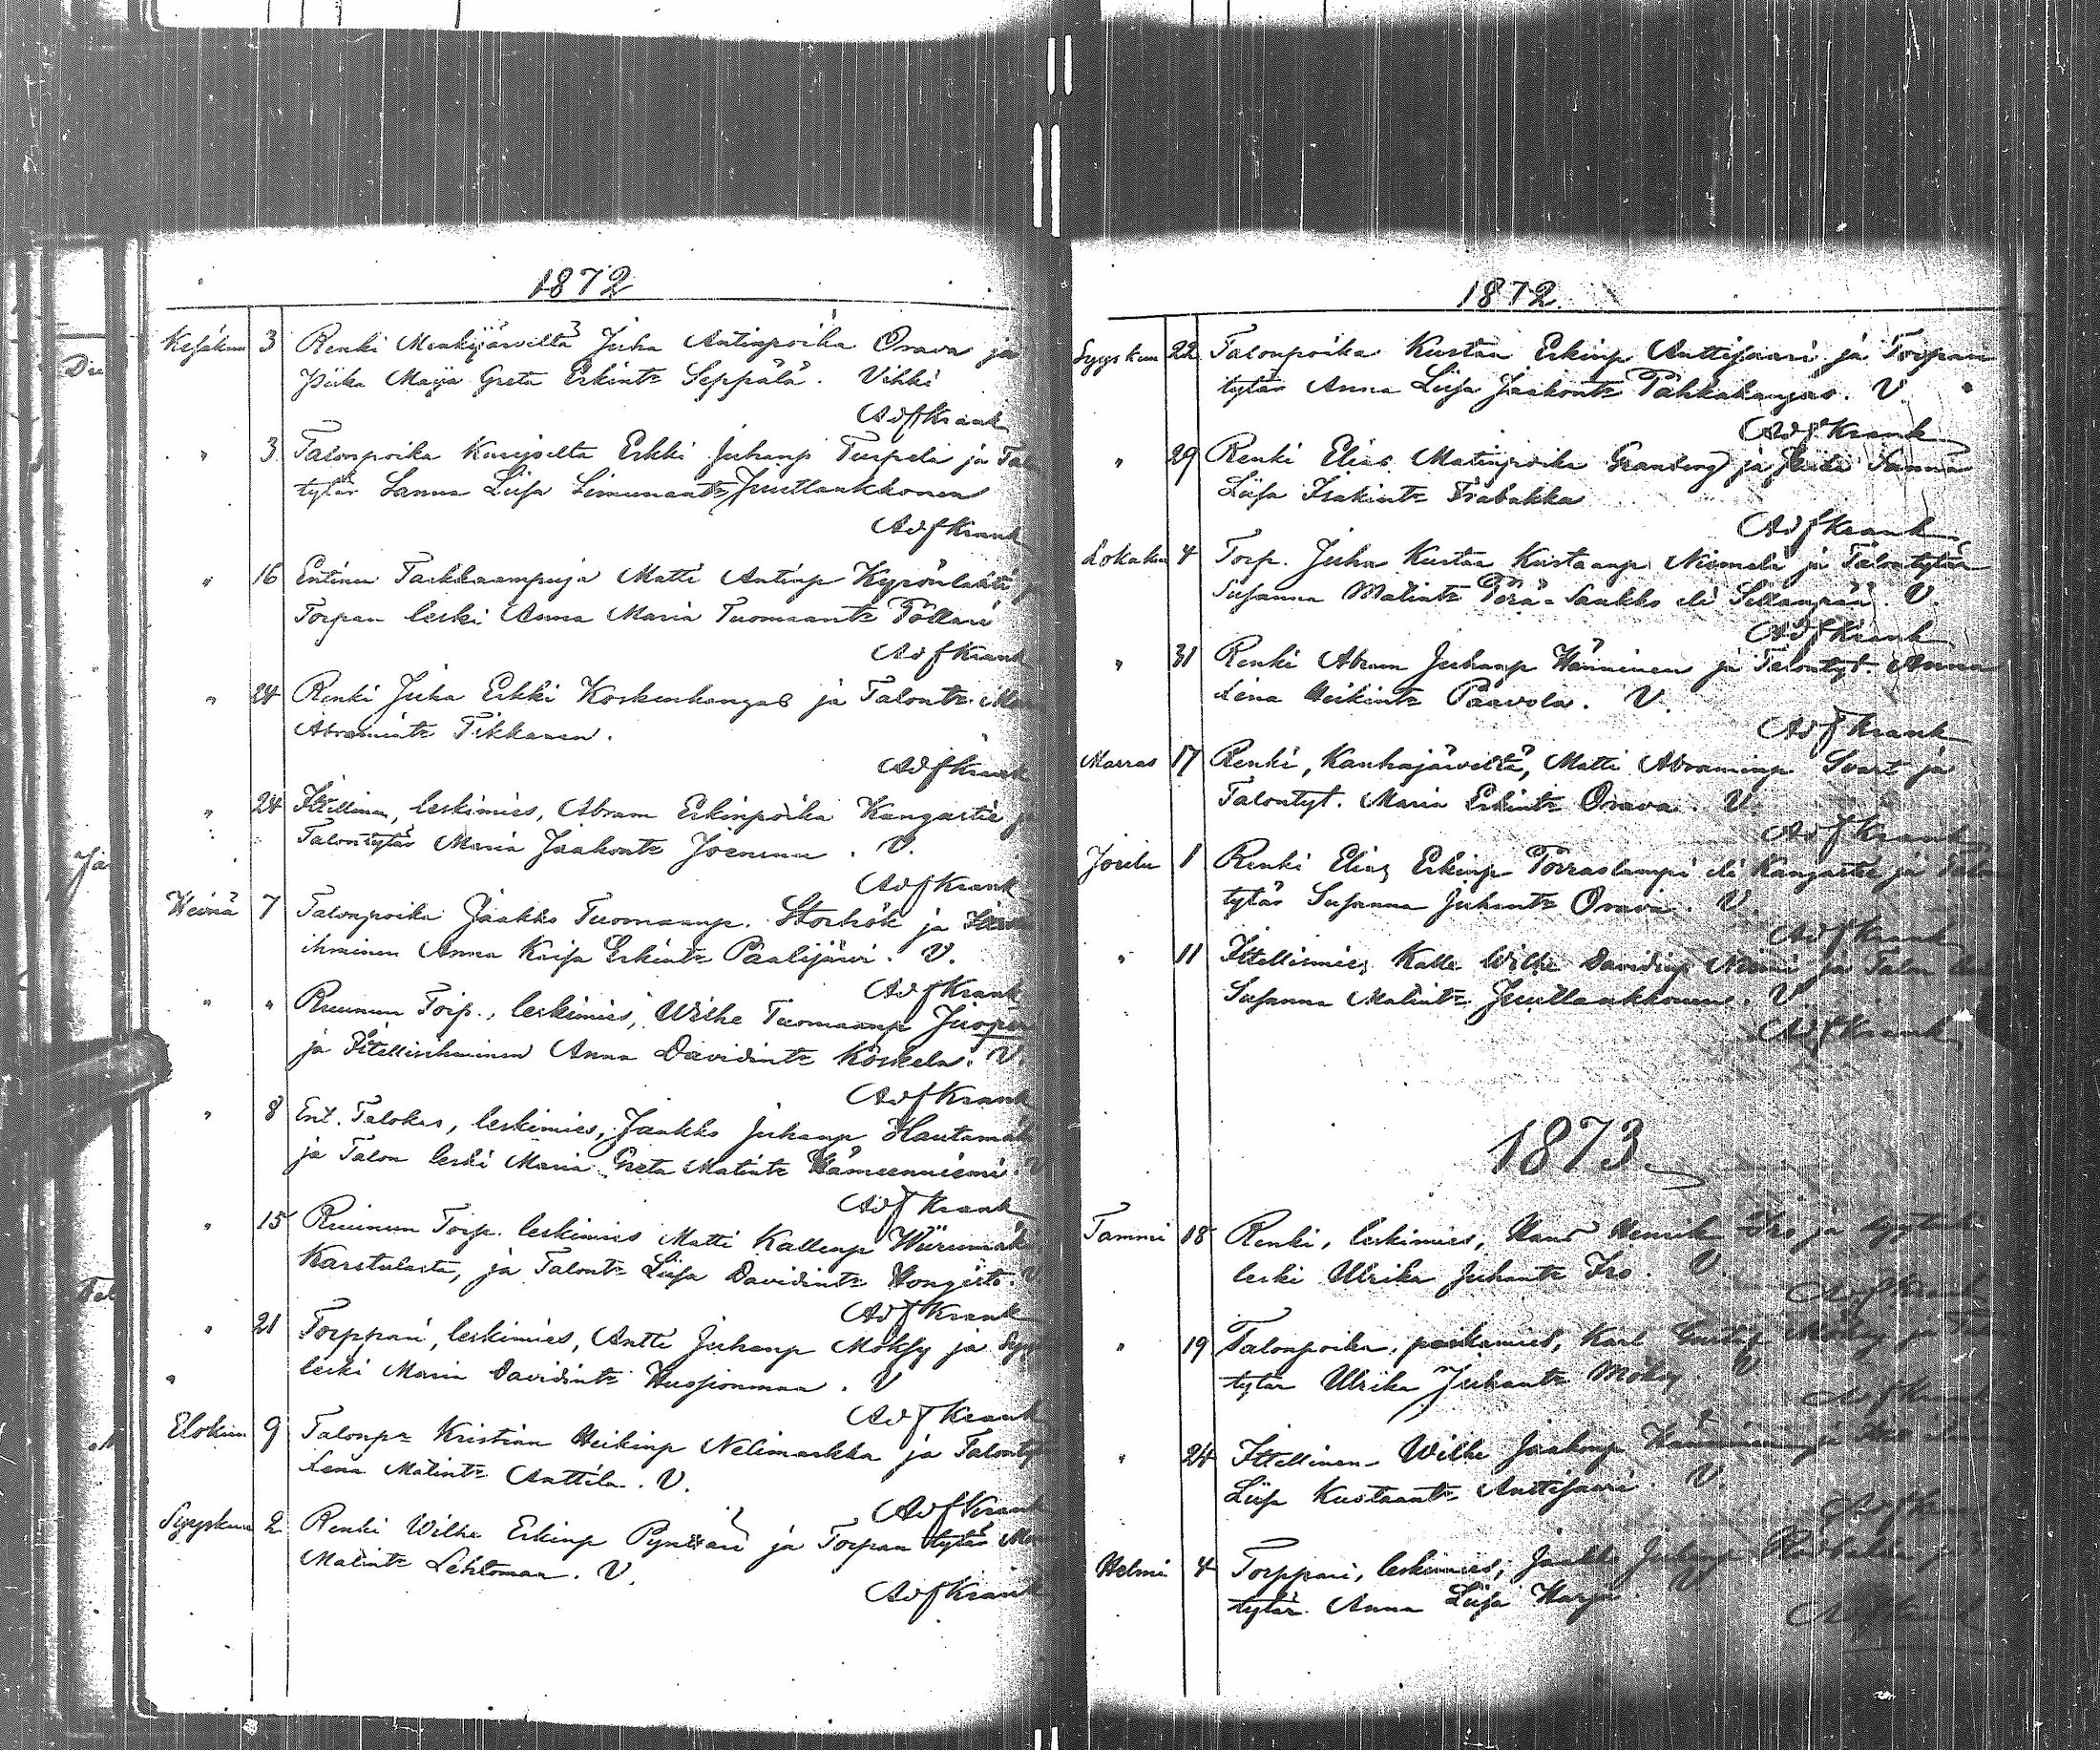 1872
Kesäkuu 3 Renki Menkijärveltä Juha Antinpoika Orava ja
Piika Maija Greta Erkint= Seppälä. Vihki
Adf Krank
" 3 Talonpoika Kurejoelta Erkki Juhanp Turpela ja
tytär Sanna Liisa Simunant= Juutlankkonen
Adf Krank
" 16 Entinen Tarkkaampuja Matti Antinp Kyrönlahti
Torpan leski Anna Maria Tuomaant= Pöllari
Adf Krank
" 24 Renki Juha Erkki Koskenkangas ja Talont=
Abramint= Tikkanen.
Adf Krank
" 24 Ittellinen, leskimies, Abram Erkinpoika Kangastie
Talontytär Maria Jaakont= Joenenu. V.
Adf Krank
Heinä 7 Talonpoika Jaakko Tuomaanp. Storhök ja
ihminen Anna Kaisa Erkint= Paalijärvi. V.
Adf Krank
" " Ruunun Torp., leskimies, Wilhe Tuomaanp
ja Ittellisihminen Anna Davidint= Koskela. V.
Adf Krank
" 8 Ent. Talokas, leskimies, Jaakko Juhanp Hautamäki
ja Talon leski Maria Greta Matint= Hämeenniemi.
Adf Krank
" 15 Ruunun Torp. leskimies Matti Kallenp Wiirumäki
Karstulasta, ja Talont= Liisa Davidint= Hongisto. V.
Adf Krank
" 21 Torppari, leskimies, Antti Juhanp Möksy ja
leski Maria Davidint= Huopionmaa. V
Adf Krank
Elokuu 9 Talonp= Kristian Heikinp Nelimarkka ja Talontyt
Lena Matint= Anttila. V.
Adf Krank
Syyskuu 2 Renki Wilhe Erkinp Pynttäri ja Torpan tytär
Matint= Lehtomaa. V.
Adf Krank
1872.
Syyskuu 22 Talonpoika Kustaa Erkinp Anttisaari ja Torpan
tytär Anna Liisa Jaakont= Pahkakangas. V.
Adf Krank
" 29 Renki Elias Matinpoika Granberg ja Piika Sanna
Liisa Isakint=
Adf Krank
Lokakuu 4 Torp. Juha Kustaa Kustaanp Niemelä ja Talontytär
Susanna Matint= Perä-Saukko eli Sillanpää. V.
Adf Krank
" 31 Renki Abram Juhanp Hänninen ja Talontyt. Anna
Lena Heikint= Paavola. V.
Adf Krank
Marras 17 Renki, Kauhajärveltä, Matti Abraminp Svart ja
Talontyt. Maria Erkint= Orava. V.
Adf Krank
Joulu 1 Renki Elias Erkinp Porraslampi eli Kangastie ja Talon
tytär Susanna Juhant= Orava. V.
Adf Krank
" 11 Ittellismies Kalle Wilhe Davidinp Niemi ja Talon
Susanna Matint= Juutlankkonen. V.
Adf Krank
1873
Tammi 18 Renki, leskimies, Hans Henrik Iso ja
leski Ulrika Juhant= Iso. V.
Adf Krank
" 19 Talonpoika, poikamies, Karl Gustaf Möksy ja
tytär Ulrika Juhant= Möksy V
Adf Krank
" 24 Ittellinen Wilhe Jaakonp Hänninen ja
Liisa Kustaant= Anttisaari. V.
Adf Krank
Helmi 4 Torppari, leskimies, Jaakko Juhanp
tytär Anna Liisa Harju
Adf Krank